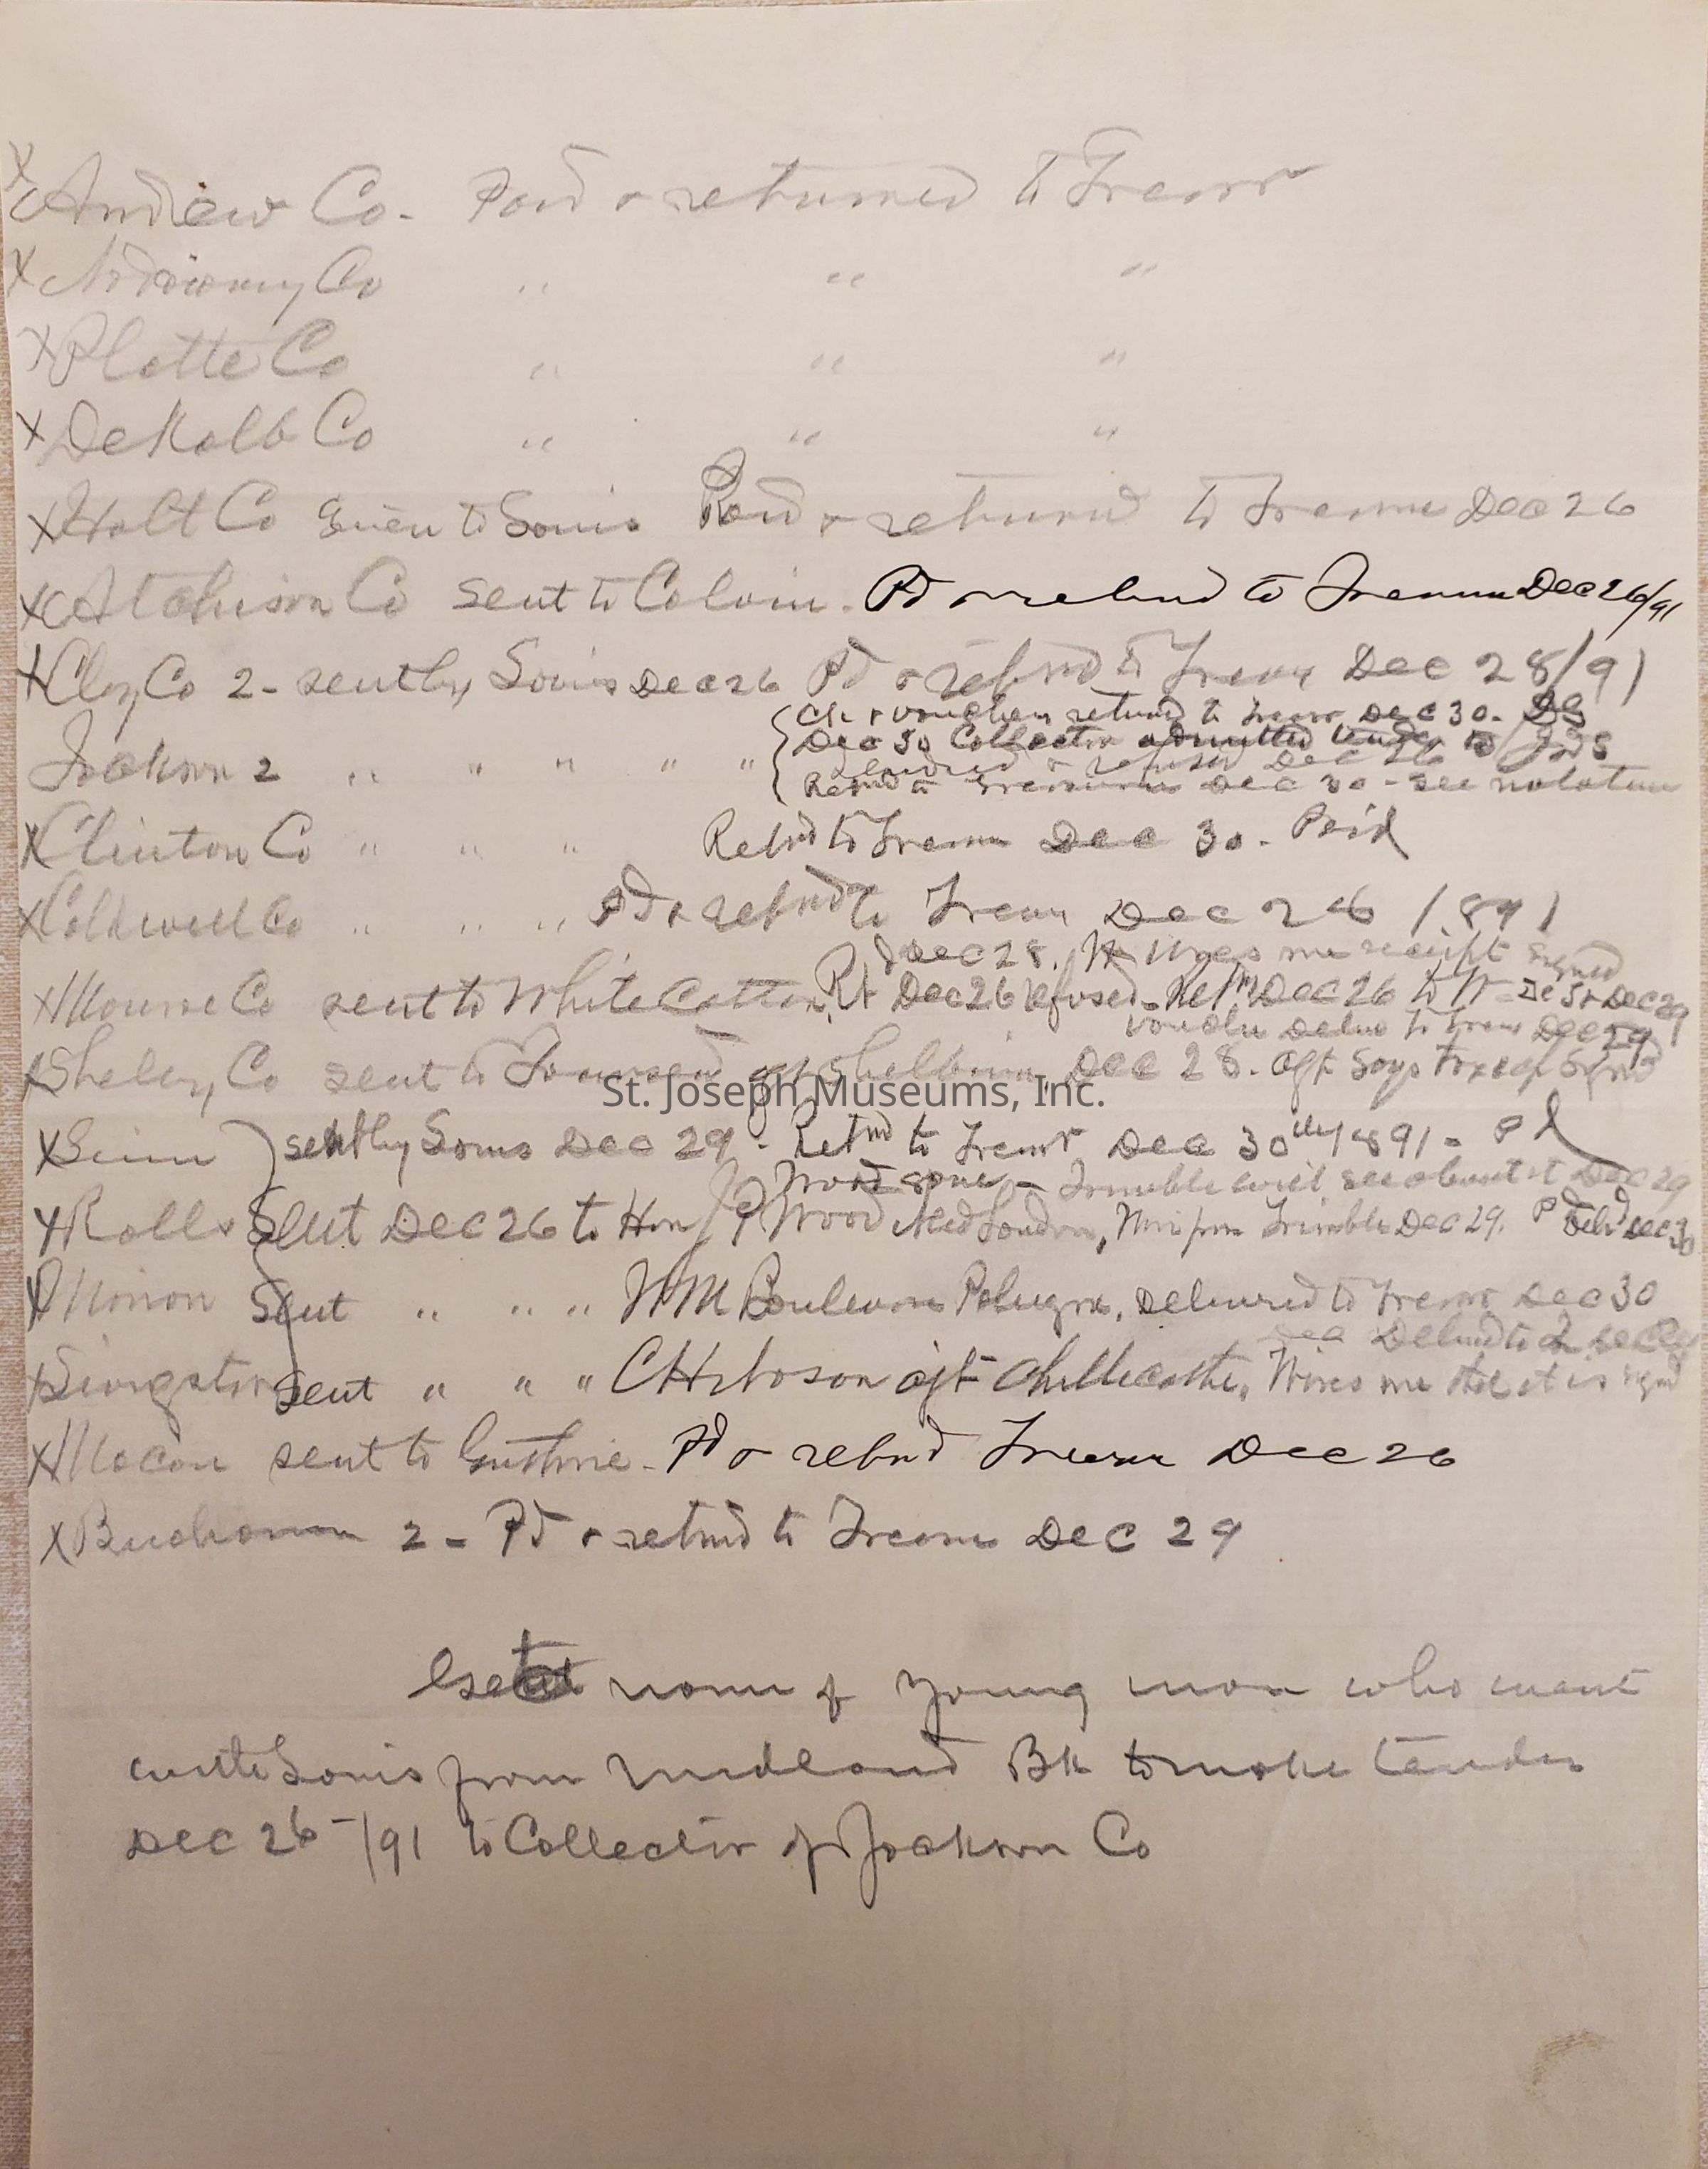 X Andrew Co. Paid & returned to Treasr
X Nodaway Co " " "
X Platte Co " " "
X DeKalb Co " " "
X Holt Co Given to Louis Paid & returnd to Treasr Dec 26
X Atchison Co sent to Colvin. Pd & retund to Treasur Dec 26/91
X Clay Co 2 - sent by Louis Dec 26 Pd & retnd to Treasr Dec 28/91
Ck & voucher retund to Treasr Dec 30.
Jackson 2 " " " " " Dec 30 Collector admitted tender to
refused Dec 26
Retnd to Treasurer Dec 30 - see notation
X Clinton Co " " " Retnd to Treasr Dec 30. Paid
X Caldwell Co " " " Pd & retund to Treasr Dec 26 1891
Dec 28. W wires me receipt signed
X Monroe Co sent to White Cotton, Rt Dec 26 refused. Retd Dec 26 to W Dec 29
voucher to Treas Dec 29
X Shelby Co sent to agt Shelbina, Dec 28. agt says
X Linn sent by Louis Dec 29 - Retnd to Treasr Dec 30th 1891 - Pd
Wood gone - Trimble will see about it Dec 29
X Ralls Sent Dec 26 to Hon J P Wood New London, Wire from Trimble Dec 29. Pd Delvd Dec 30
X Marion Sent " " " W M Boulware Palmyra, Delivered to Treasr Dec 30
Delivrd to
X Livingston sent " " " C H agt Chillicothe, Wires me that it is signd
X Macon sent to Guthrie. Pd & retnd Treasr Dec 26
X Buchanan 2 - Pd & retnd to Treasr Dec 29
Get name of young man who went
with Louis from Midland Bk to make tender
Dec 26 - /91 to Collector of Jackson Co
St. Joseph Museums, Inc.